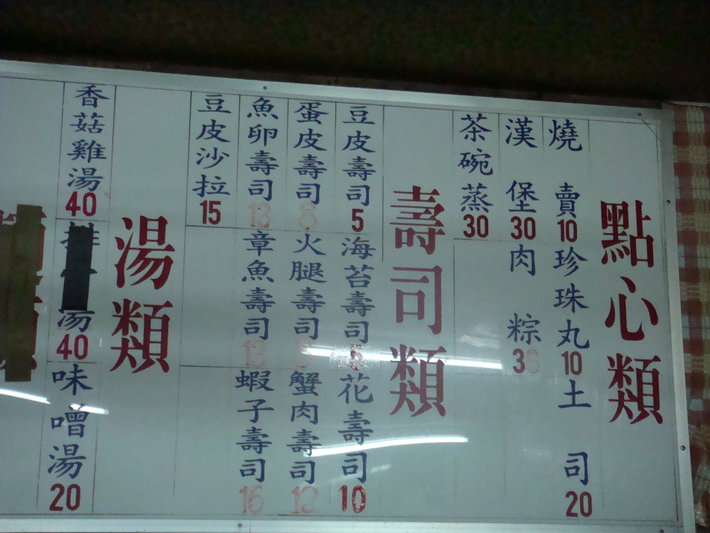 點心類
燒賣10
珍珠丸10
土司20
漢堡30
肉粽3
茶碗蒸30
壽司類
豆皮壽司5
海苔壽司5
花壽司10
蛋皮壽司8
火腿壽司
蟹肉壽司12
魚卵壽司
章魚壽司
蝦子壽司16
豆皮沙拉15
湯類
香菇雞湯40
排 湯40
味噌湯20
類